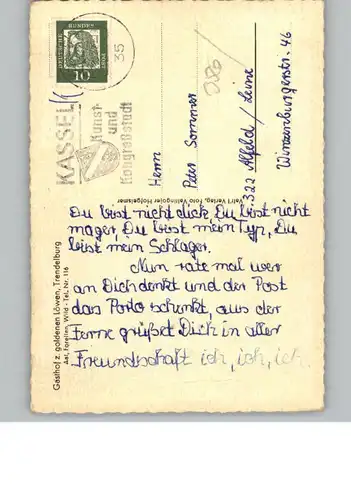 Du bist nicht dick, Du bist nicht
mager, Du bist mein Typ, Du
bist mein Schlager.
Nun rate mal wer
an Dich denkt und der Post
das Porto schenkt, aus der
Ferne grüßet Dich in aller
Freundschaft ich, ich, ich.
Herrn
Peter Sommer
322 Alfeld / Leine
Winzenburgerstr. 46
KASSEL
Kunst-
und
Kongreßstadt
35
DEUTSCHE
BUNDESPOST
10
Gasthof z. goldenen Löwen, Trendelburg
Aal, Forellen, Wild - Tel. Nr. 116
Verlag, Foto Hofgeismar